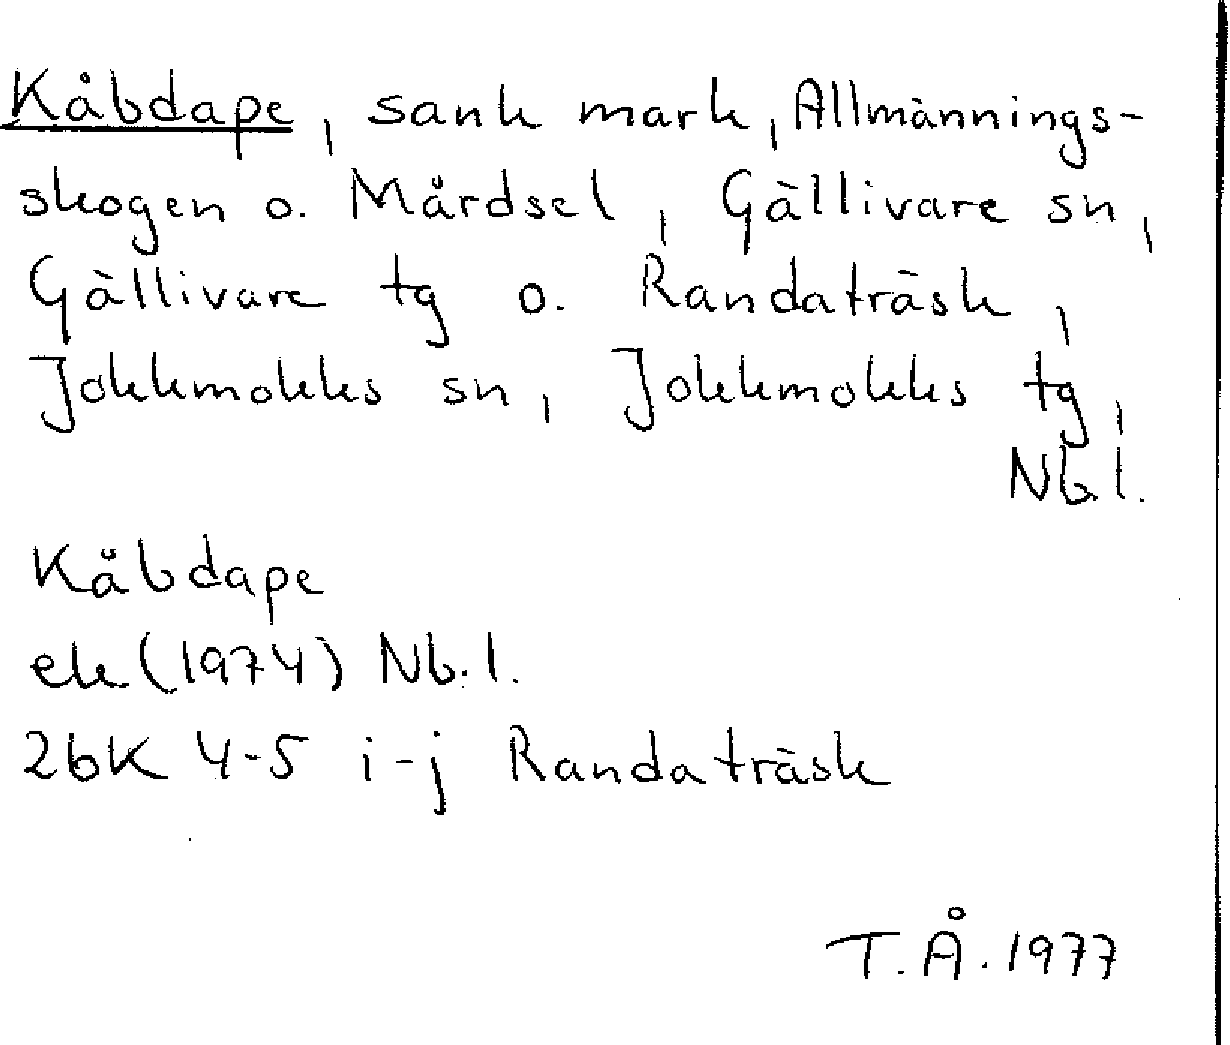 Kåbdape, sank mark, Allmännings-
skogen o. Mårdsel, Gällivare sn,
Gällivare tg o. Randaträsk,
Jokkmokks sn, Jokkmokks tg,
Nb.l.
Kåbdape
ek (1974) Nb.l.
26K 4-5 i-j Randaträsk
T.Å. 1977